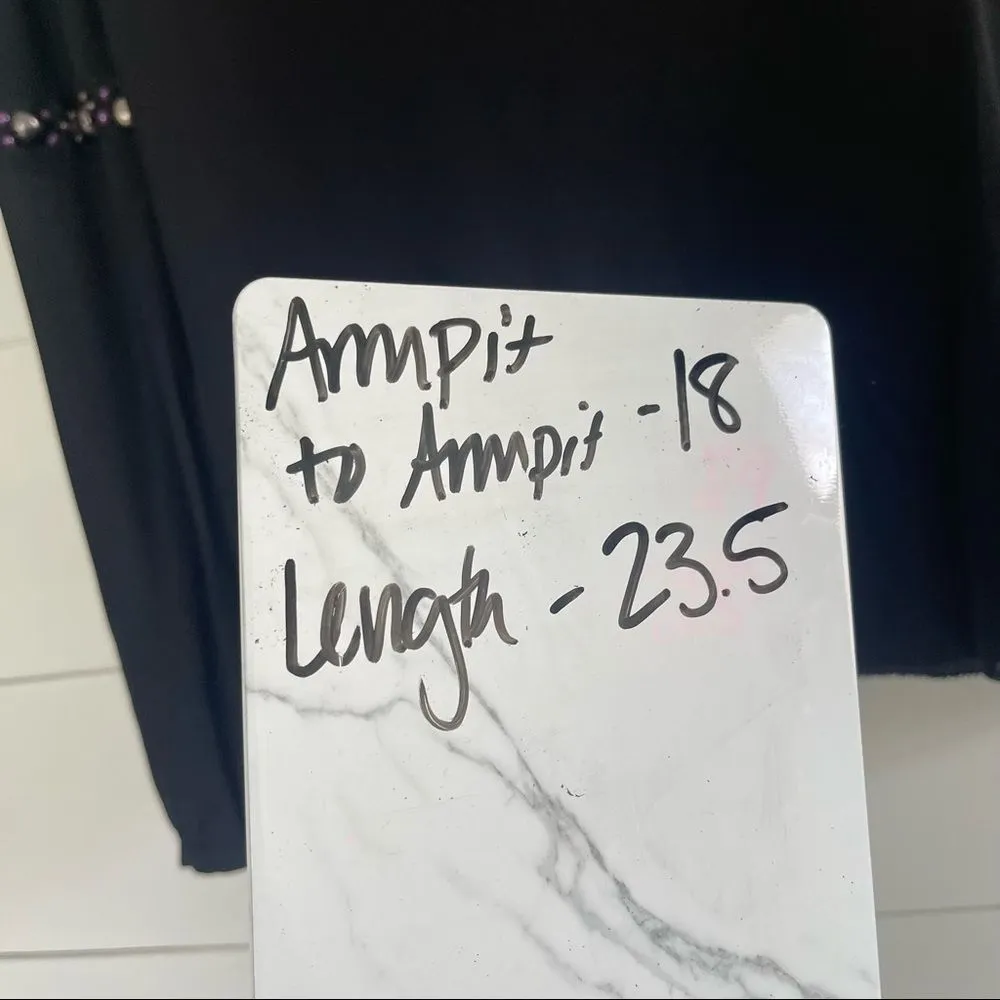 Armpit
to Armpit - 18
Length - 23.5